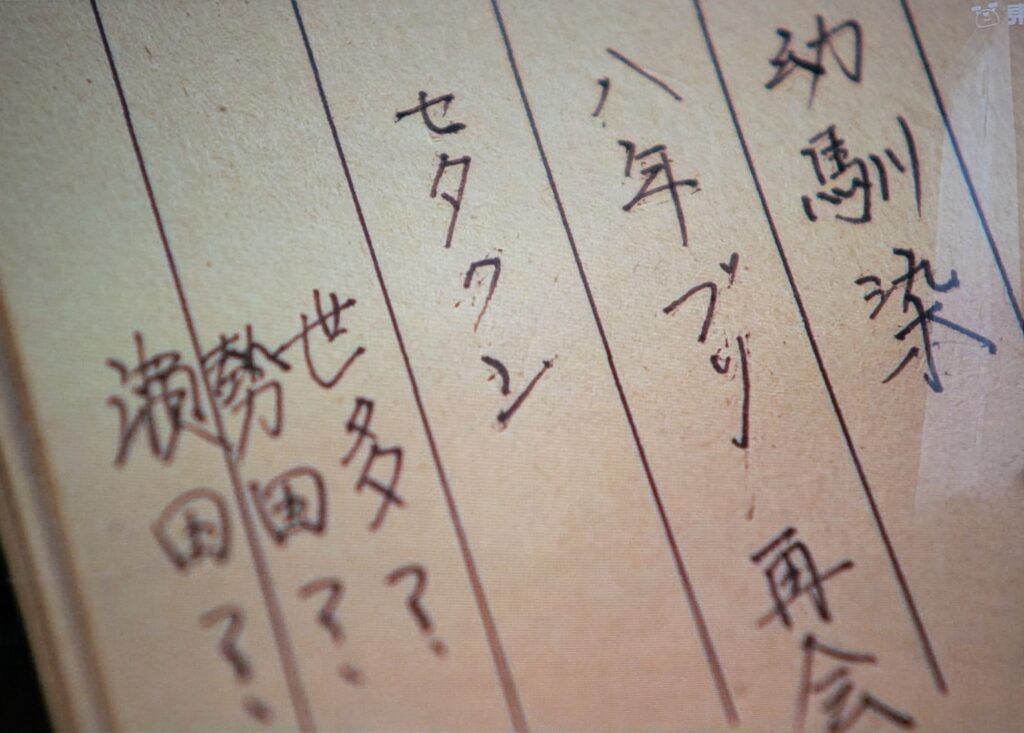 幼馴染
八年ブリ 再会
セタクン
世多?
勢田?
瀬田?